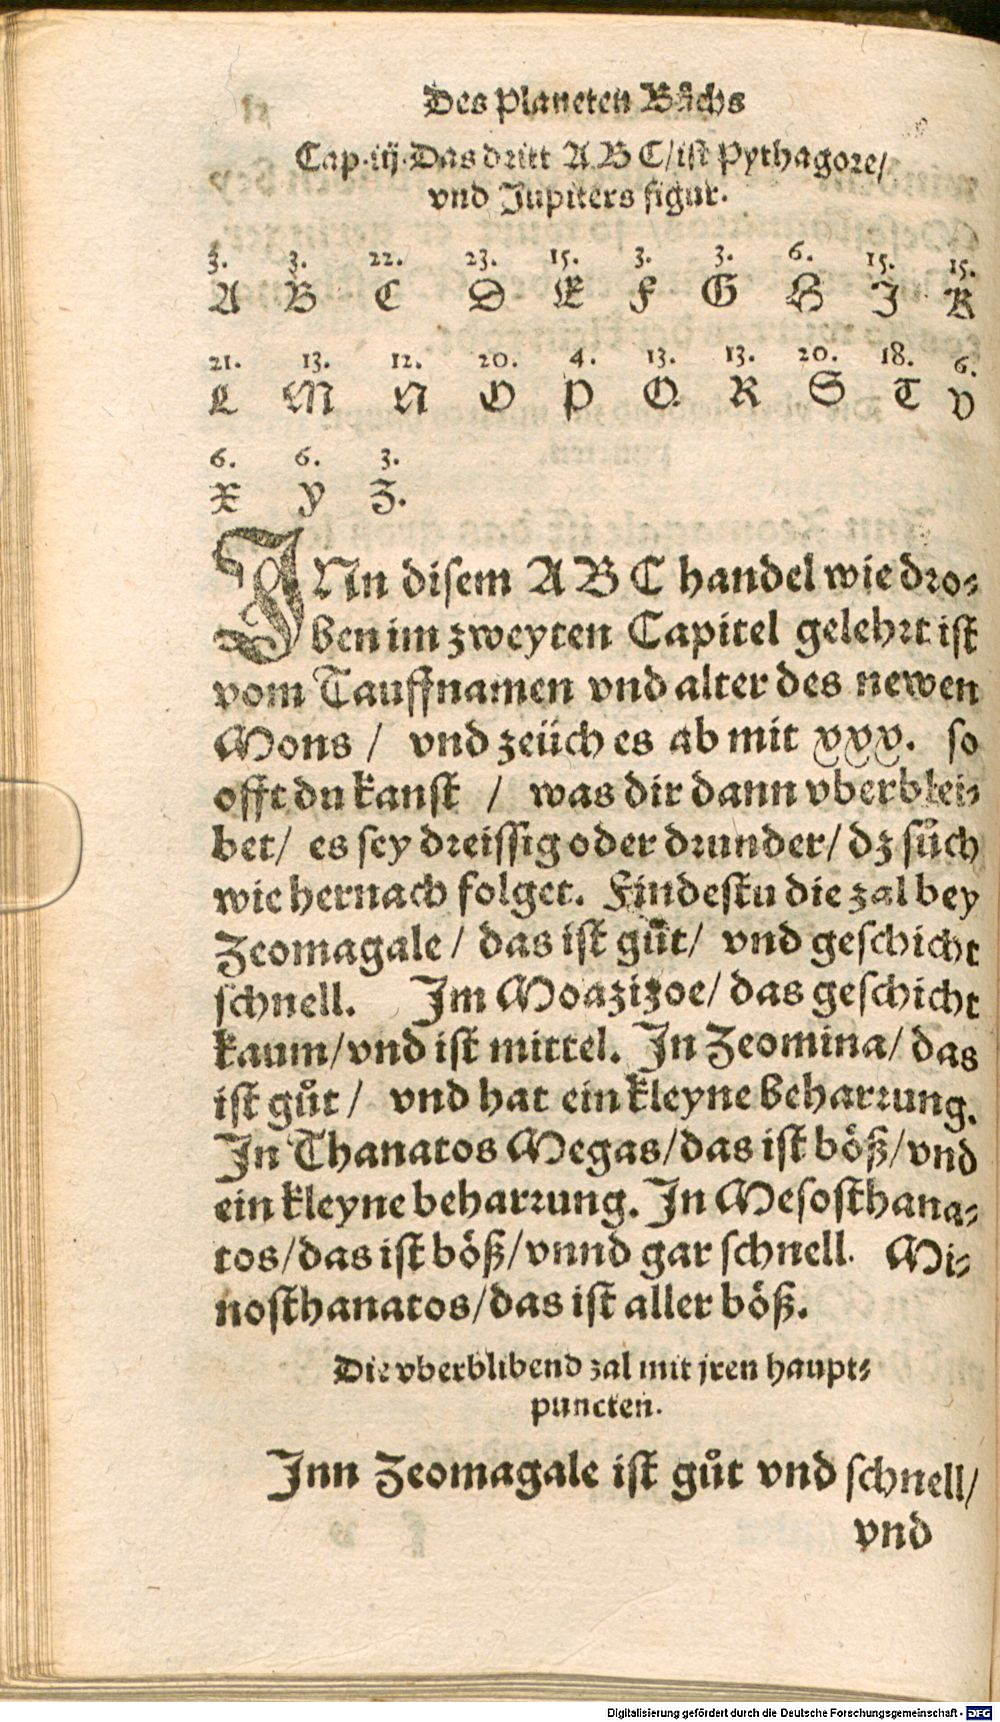 Des Planeten Bůchs
Cap. iij. Das dritt A B C/ ist Pythagore/
vnd Jupiters figur.
3. 3. 22. 23. 15. 3. 3. 6. 15. 15.
A B C D E F G H J K
21. 13. 12. 20. 4. 13. 13. 20. 18. 6.
L M N O P Q R S T V
6. 6. 3.
X Y Z.
JNn disem A B C handel wie dro⸗
ben im zweyten Capitel gelehrt ist
vom Tauffnamen vnd alter des newen
Mons / vnd zeüch es ab mit xxx. so
offt du kanst / was dir dann vberblei⸗
bet/ es sey dreissig oder drunder/ dz sůch
wie hernach folget. Findestu die zal bey
Zeomagale/ das ist gůt/ vnd geschicht
schnell. Jm Moazizoe/ das geschicht
kaum/ vnd ist mittel. Jn Zeomina/ das
ist gůt/ vnd hat ein kleyne beharrung.
Jn Thanatos Megas/ das ist böß/ vnd
ein kleyne beharrung. Jn Mesosthana⸗
tos/ das ist böß/ vnnd gar schnell. Mi⸗
nosthanatos/ das ist aller böß.
Die vberblibend zal mit jren haupt⸗
puncten.
Jnn Zeomagale ist gůt vnd schnell/
vnd
Digitalisierung gefördert durch die Deutsche Forschungsgemeinschaft - DFG